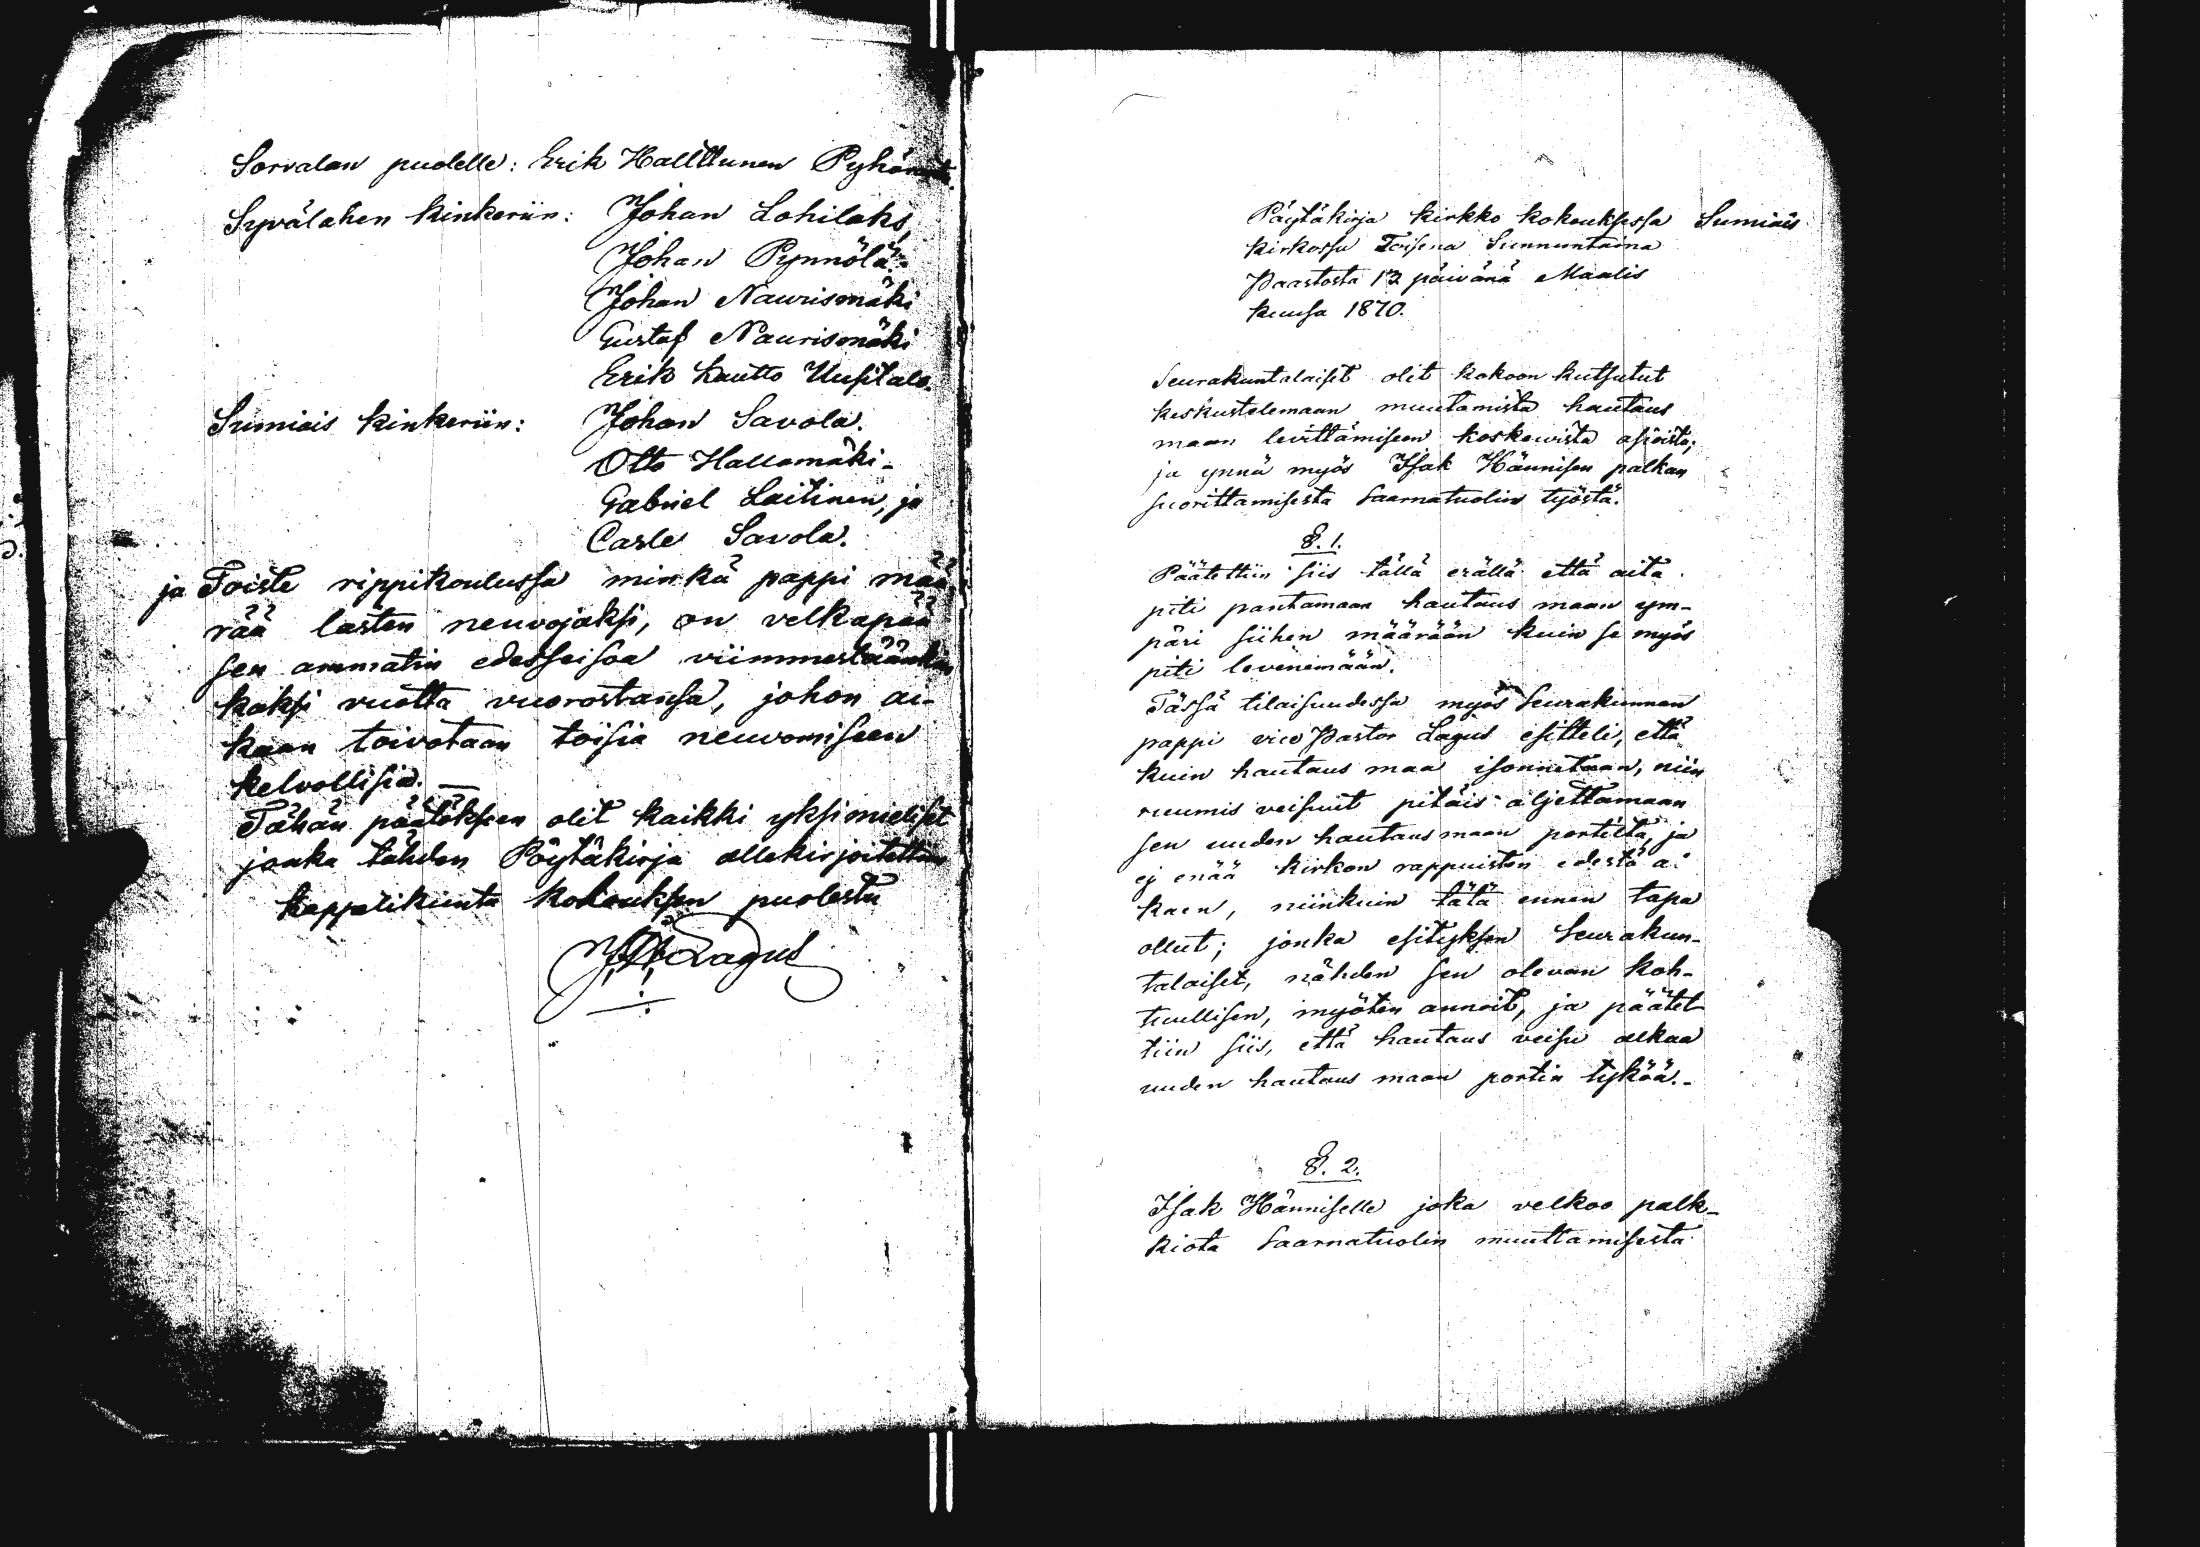 Sorvalan puolelle: Erik Hallttunen
Syvälahen kinkeriin: Johan Lohilaks,
Johan Pynnölä.
Johan Naurismäki
Gustaf Naurismäki
Erik Kautto Uusitalo.
Sumiais kinkeriin: Johan Savola.
Otto Hallamäki.
Gabriel Laitinen, ja
Carle Savola.
ja Toiste rippikoulussa minkä pappi mää
rää lasten neuvojaksi, on velkapää
sen ammatin edesseisoa viimmestäänkin
kaksi vuotta vuorostansa, johon ai-
kaan toivotaan toisia neuvomiseen
kelvollisia.
Tähän päätökseen olit kaikki yksimieliset
jonka tähden Pöytäkirja allekirjoitettiin
kappelikunta kokouksen puolesta
Lagus
Pöytäkirja kirkko kokouksessa Sumiais
kirkossa Toisena Sunnuntaina
Paastosta 13 päivänä Maalis
kuussa 1870.
Seurakuntalaiset olit kokoon kutsutut
keskustelemaan muutamista hautaus
maan levittämiseen koskewista asioista;
ja ynnä myös Isak Hännisen palkan
suorittamisesta Saarnatuolin työstä.
§. 1.
Päätettiin siis tällä erällä että aita
piti pantamaan hautaus maan ym-
päri siihen määrään kuin se myös
piti levenemään.
Tässä tilaisuudessa myös Seurakunnan
pappi vice Pastor Lagus esitteli, että
kuin hautaus maa isonnetaan, niin
ruumis veisuut pitäis aljettamaan
sen uuden hautausmaan portilta, ja
ej enää kirkon rappuisten edestä al
kaen, niinkuin tätä ennen tapa
ollut; jonka esityksen Seurakun-
talaiset, nähden sen olevan koh-
tuullisen, myöten annoit, ja päätet
tiin siis, että hautaus veisu alkaa
uuden hautaus maan portin tyköä.-
§. 2.
Isak Hänniselle joka velkoo palk-
kiota Saarnatuolin muuttamisesta